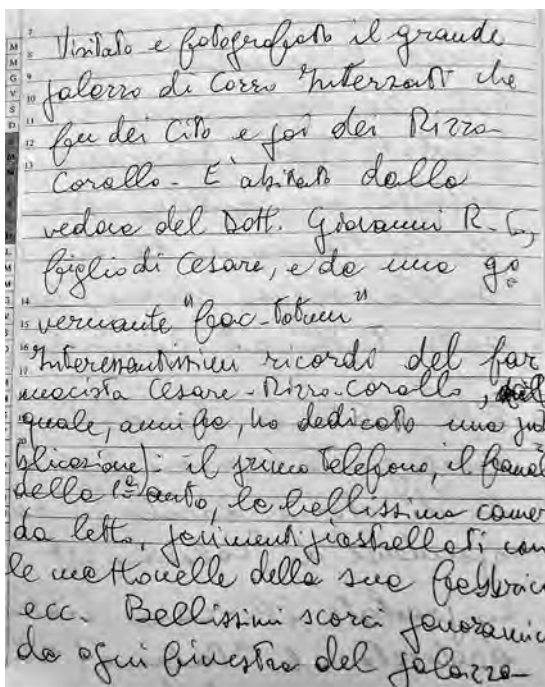 Visitato e fotografato il grande
palazzo di Corso Interzati che
fu dei Cito e poi dei Rizzo
Corallo - È abitato dalla
vedova del Dott. Giovanni R. C.,
figlio di Cesare, e da una go
vernante "fac-totum"
Interessantissimi ricordi del far
macista Cesare-Rizzo-Corallo,
quale, anni fa, ho dedicato una pub
blicazione): il primo telefono, il fanal
della 1ª auto, la bellissima camer
da letto, pavimenti piastrellati con
le mattonelle della sua fabbrica
ecc. Bellissimi scorci panoramic
da ogni finestra del palazzo